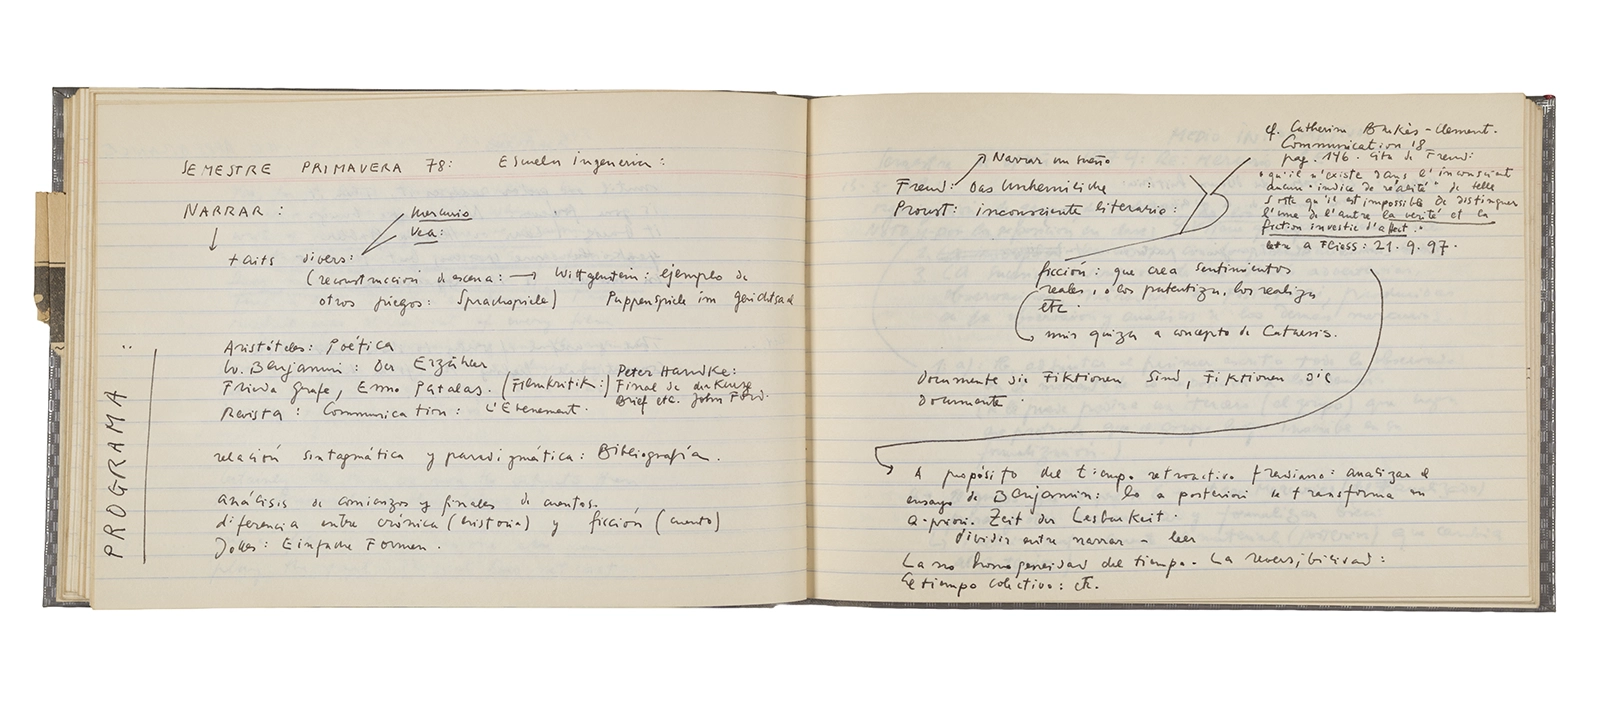 SEMESTRE PRIMAVERA 78: Escuela Ingenieria:
NARRAR:
mercurio
Vea:
faits divers:
(reconstrucción d escena: → Wittgenstein: ejemplo de
otros juegos: Sprachspiele) Puppenspiele im Gerichtsaal
PROGRAMA :
Aristóteles: Poética
W. Benjamin: Der Erzähler
Frieda Grafe, Enno Patalas. (Filmkritik:)
Revista: Communication: L'Evenement.
Peter Handke:
Final de der kurze
Brief etc. John Ford.
relación sintagmática y paradigmática: Bibliografía.
análisis de comienzos y finales de cuentos.
diferencia entre crónica (historia) y ficción (cuento)
Jolles: Einfache Formen.
Narrar un sueño
Freud: Das Unheimliche :
Proust: inconsciente literario:
cf. Catherine Backès-Clement.
Communication 18
pag. 146. Cita de Freud:
"qu'il n'existe dans l'inconscient
aucun "indice de réalité" de telle
sorte qu'il est impossible de distinguer
l'une de l'autre la verité et la
fiction investie d'affect."
a Fliess: 21.9.97.
ficción: que crea sentimientos
reales, o los patentiza, los realiza
etc.
mis quizas a concepto de Catarsis.
Dokumente die Fiktionen sind, Fiktionen die
Dokumente
A propósito del tiempo retroactivo freudiano: analizar el
ensayo de Benjamin: lo a posteriori se transforma en
a-priori. Zeit der Lesbarkeit.
dividir entre narrar - leer
La no homogeneidad del tiempo. La reversibilidad:
El tiempo colectivo: etc.